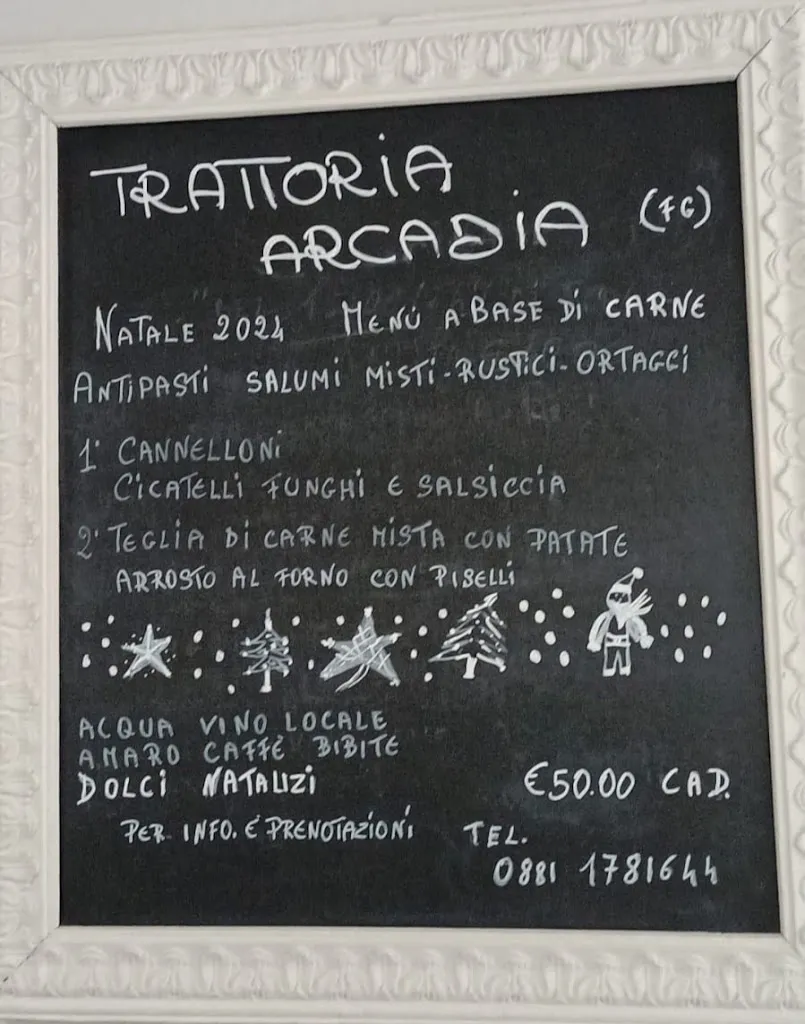 TRATTORIA
ARCADIA (FG)
NATALE 2024 MENÙ A BASE DI CARNE
ANTIPASTI SALUMI MISTI-RUSTICI-ORTAGGI
1° CANNELLONI
CICATELLI FUNGHI E SALSICCIA
2° TEGLIA DI CARNE MISTA CON PATATE
ARROSTO AL FORNO CON PISELLI
ACQUA VINO LOCALE
AMARO CAFFÈ BIBITE
DOLCI NATALIZI €50.00 CAD.
PER INFO. E PRENOTAZIONI TEL.
0881 1781644